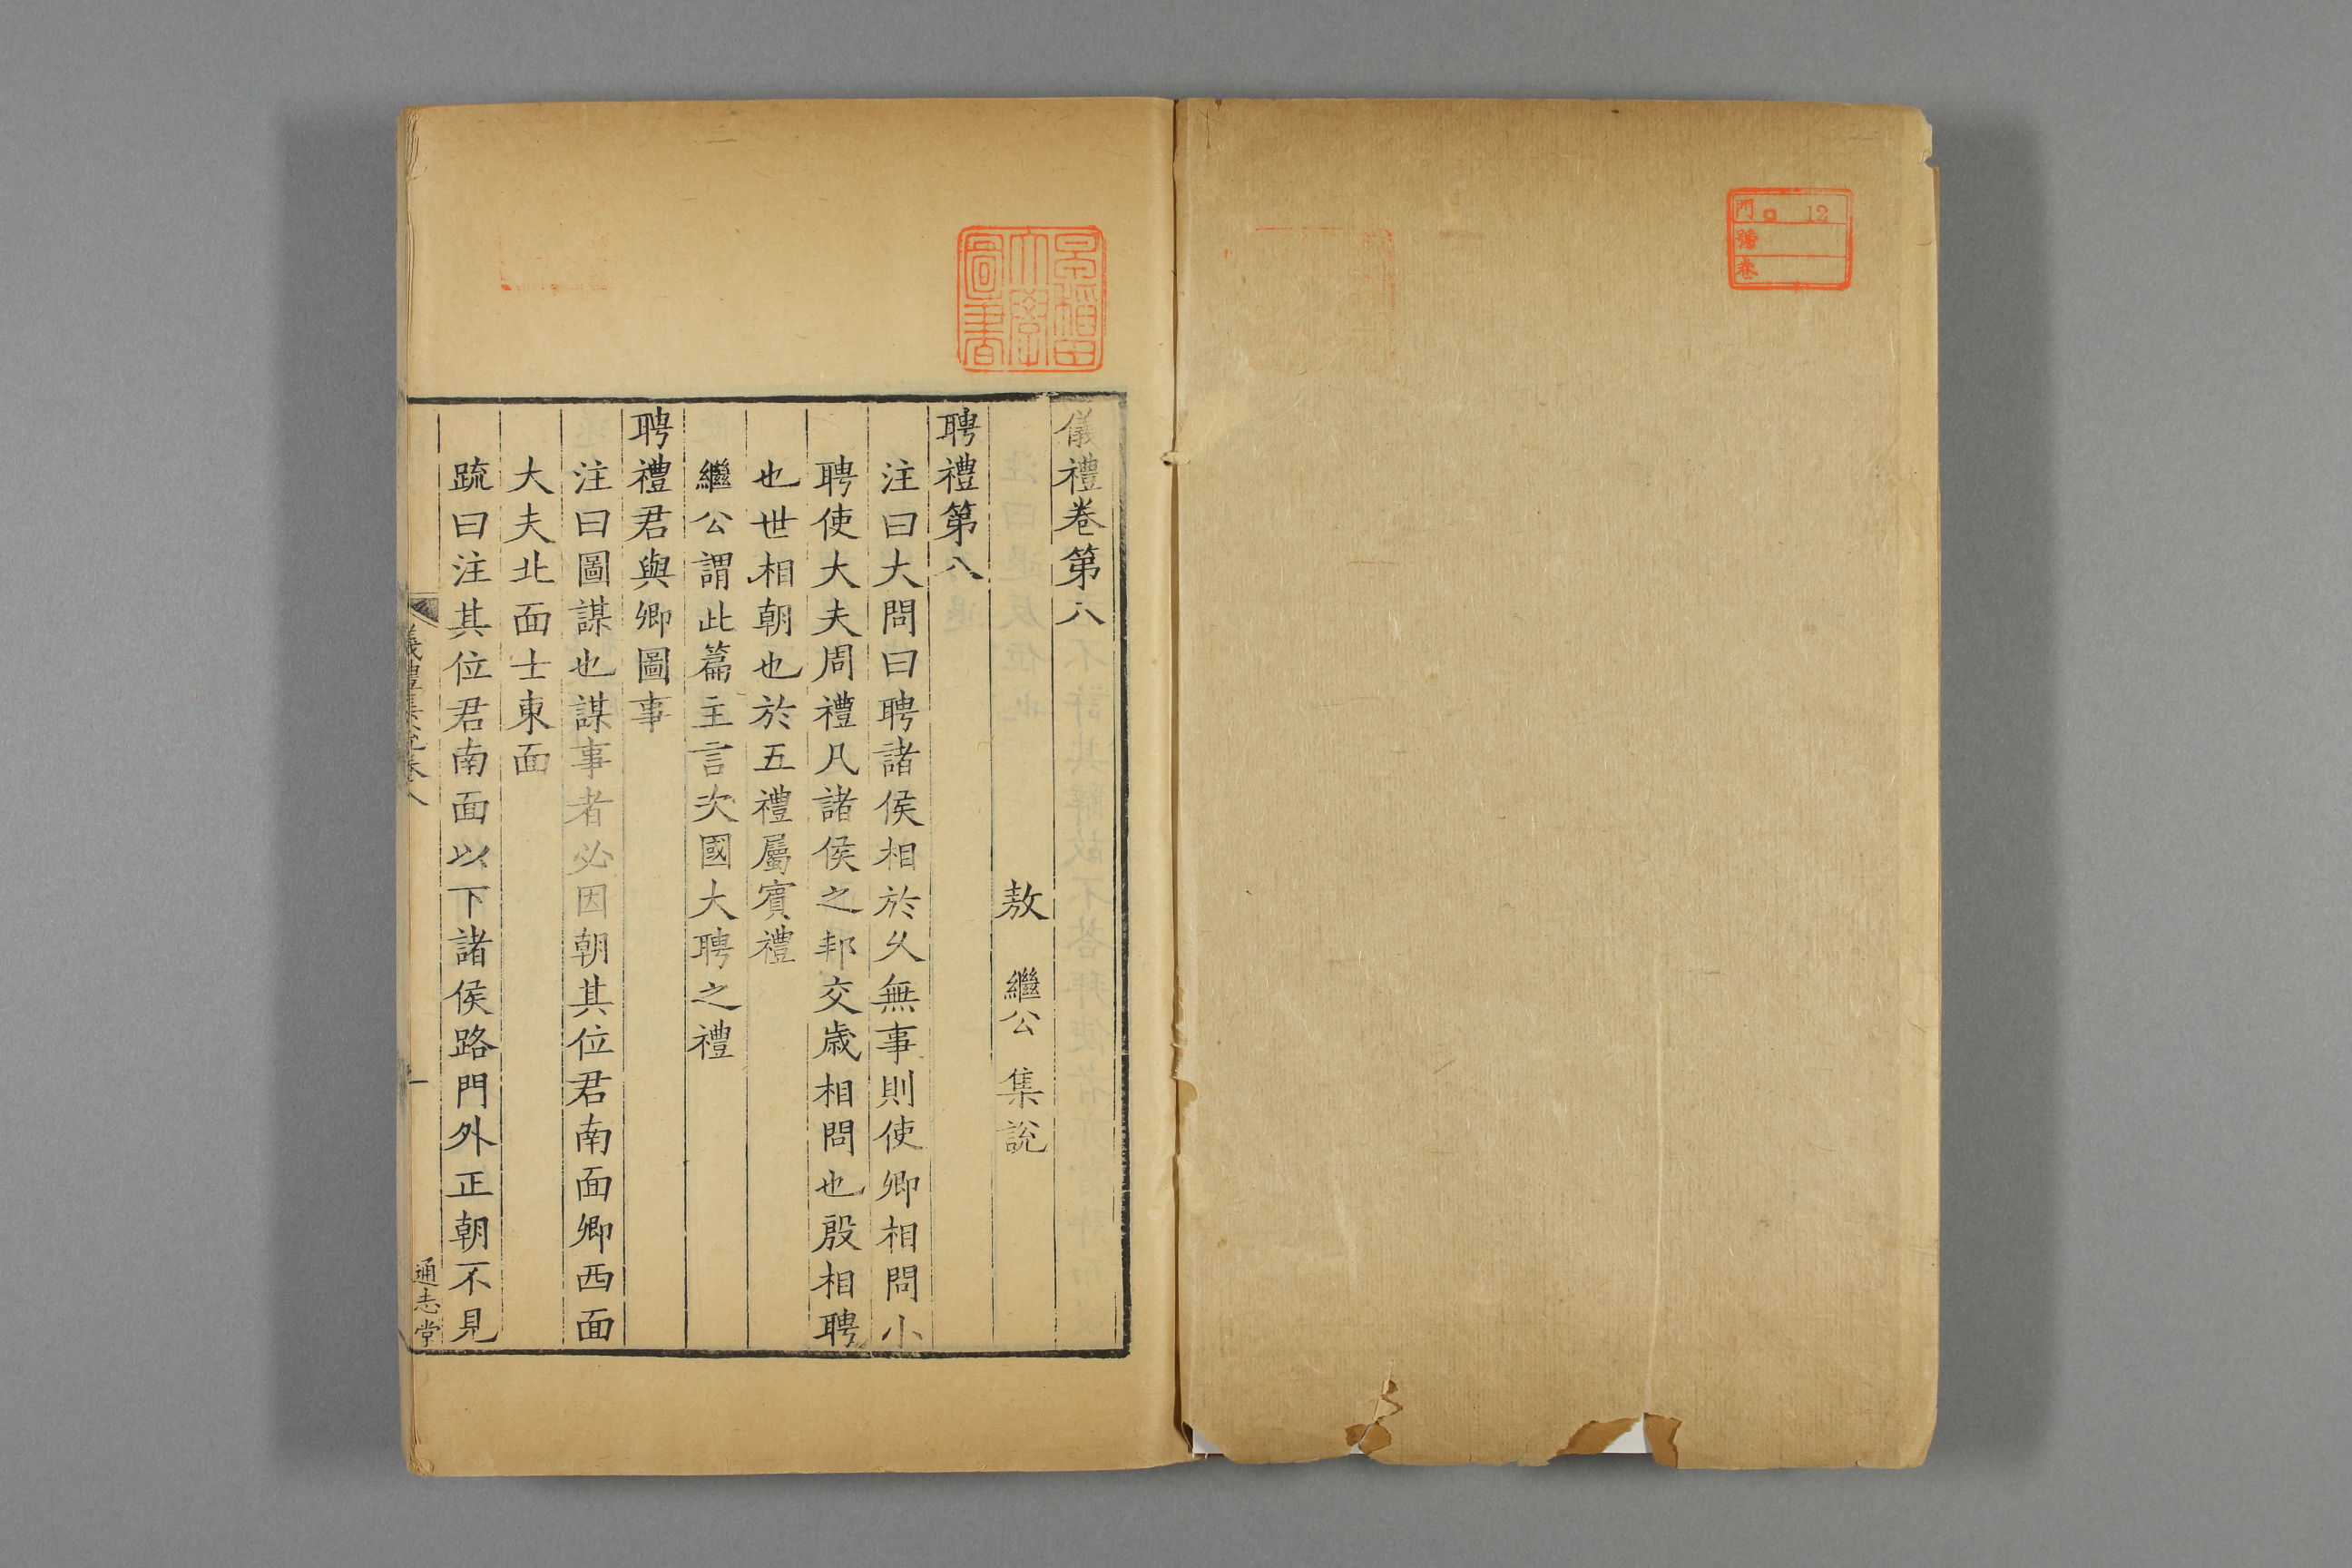 門 12
號
卷
早稲田大學圖書
儀禮卷第八
敖 繼公 集說
聘禮第八
注曰大問曰聘諸侯相於乆無事則使卿相問小
聘使大夫周禮凡諸侯之邦交歲相問也殷相聘
也世相朝也於五禮屬賓禮
繼公謂此篇主言次國大聘之禮
聘禮君與卿圖事
注曰圖謀也謀事者必因朝其位君南面卿西面
大夫北面士東面
䟽曰注其位君南面以下諸侯路門外正朝不見
儀禮集說卷八
一
通志堂